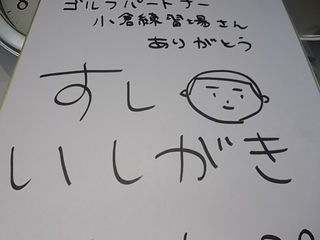 ゴルフパートナー
小倉練習場さん
ありがとう
すし
いしがき